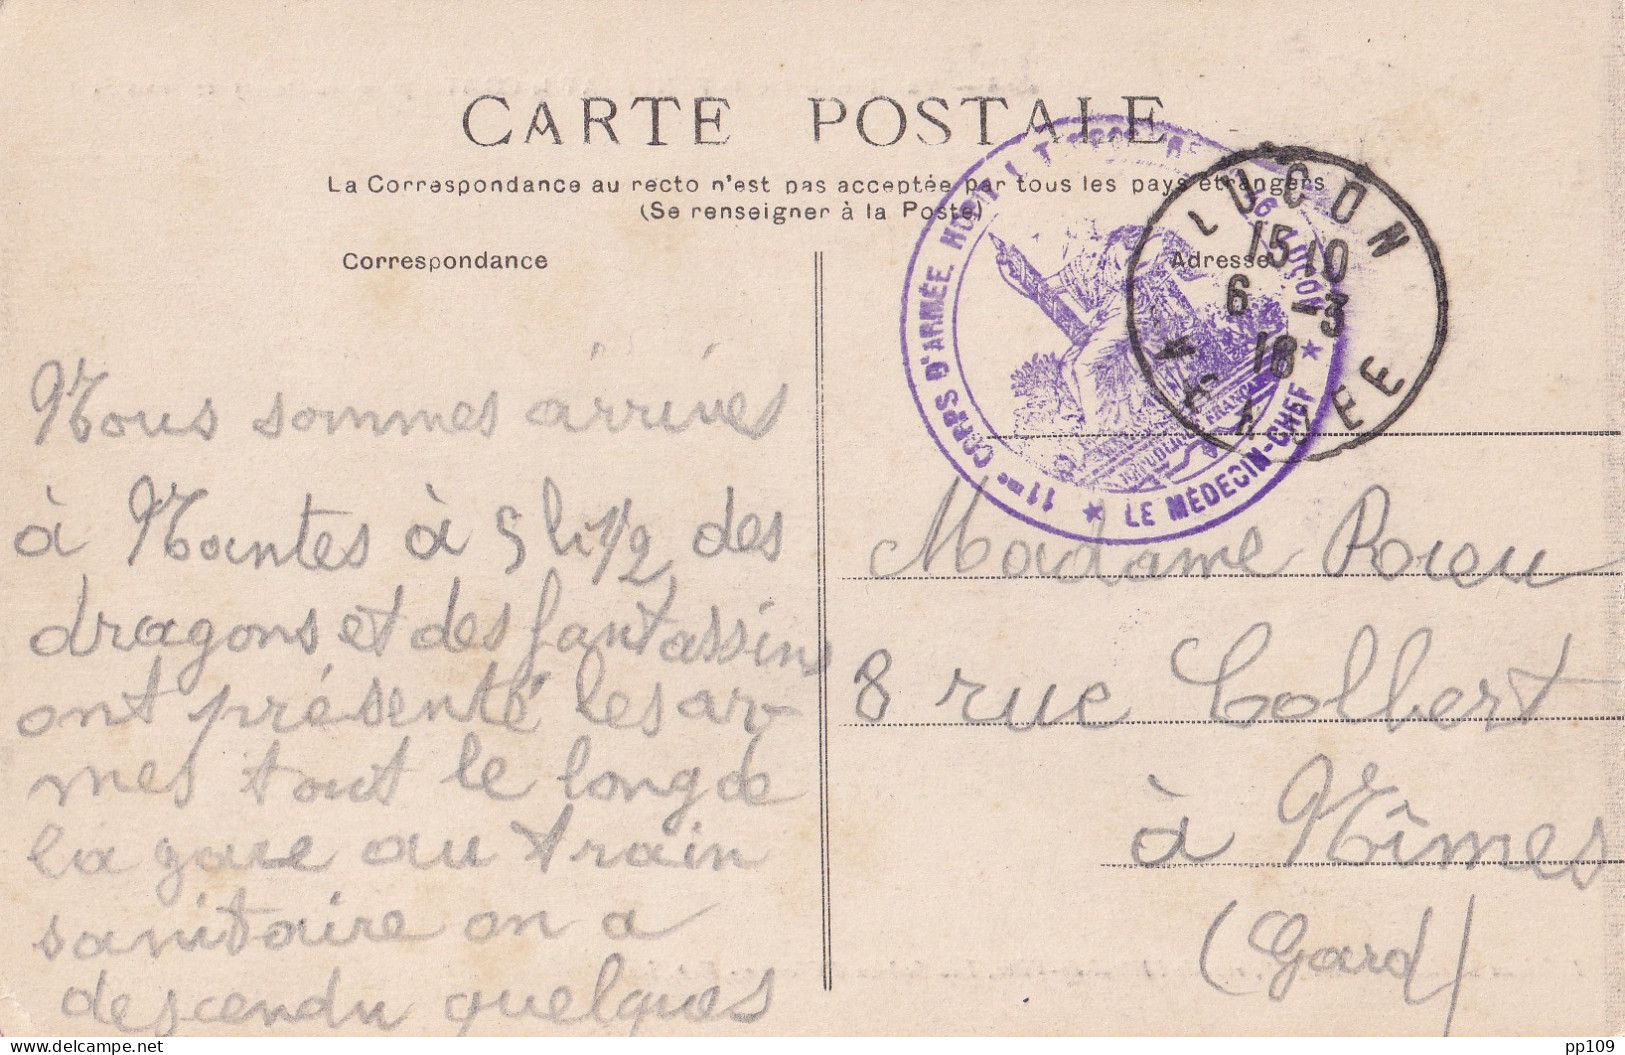 CARTE POSTALE
La Correspondance au recto n'est pas acceptée par tous les pays étrangers
(Se renseigner à la Poste)
Correspondance
Nous sommes arrives
à Nantes à 5 h 1/2 des
dragons et des fantassins
ont présenté les ar-
mes tout le long de
la gare au train
sanitaire on a
descendu quelques
Adresse
11me CORPS D'ARMÉE
LUÇON
★ LE MÉDECIN-CHEF ★
LUCON
15 10
6 -3
18
VENDEE
Madame Rieu
8 rue Colbert
à Nîmes
(Gard)
pp109